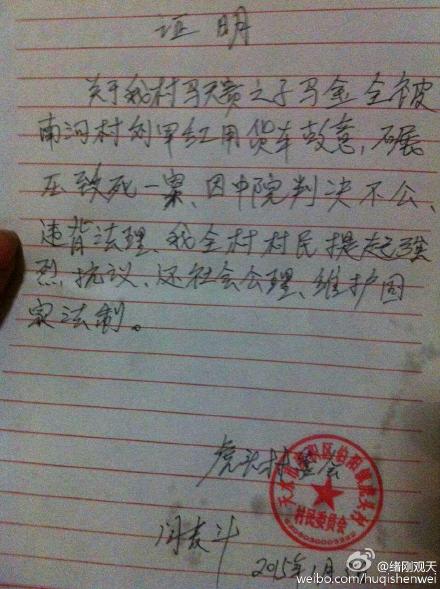 证明
关于我村马天贵之子马金全被
南河村刘军红用货车故意,碾
压致死一案、因中院判决不公、
违背法理、我全村村民提起强
烈抗议、还社会公理、维护国
家法制。
虎头村委会
村民委员会
闫友斗
2015年1月
@绪刚观天
weibo.com/huqishenwei